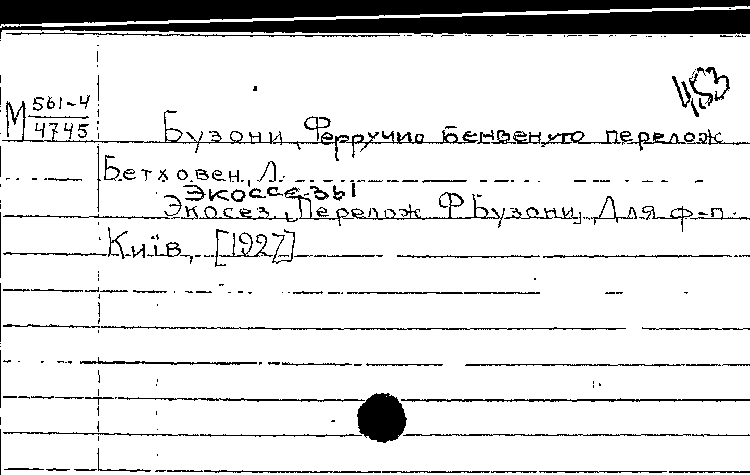 М 561-4
4745
Бузони, Ферручио Бенвенуто перелож
Бетховен, Л.
Экоссезы
Экосез, Перелож Ф Бузони, Для ф-п.
Київ, [1927]